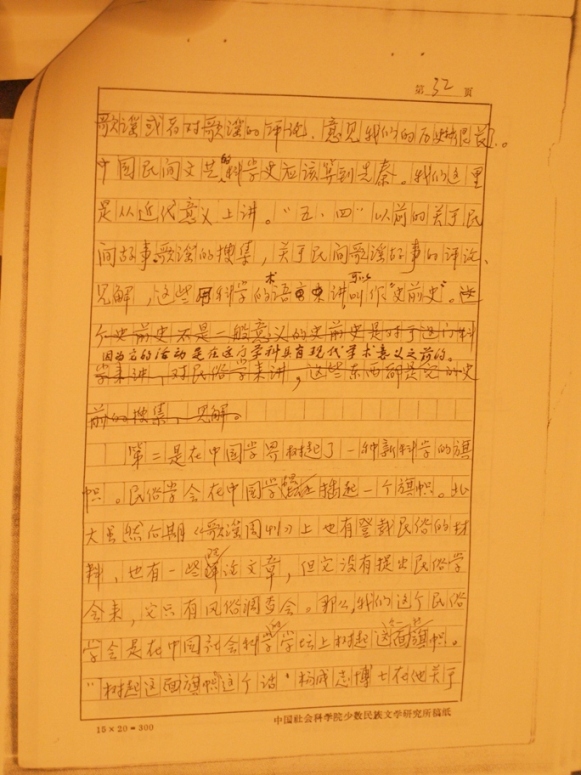 第32页
歌谣或者对歌谣的评论、意见我们的历史特别长。
中国民间文艺的科学史应该算到先秦。我们这里
是从近代意义上讲。“五·四”以前的关于民
间故事、歌谣的搜集，关于民间歌谣故事的评论、
见解，这些用科学的术语来讲，可以叫作“史前史”。这
个史前史不是一般意义的史前史是对于这门科
因为它的活动是在这门学科具有现代学术意义之前的。
学来讲，对民俗学来讲，这些东西都是它的史
前的搜集，见解。
第二是在中国学界树起了一种新科学的旗
帜。民俗学会在中国学坛上插起一个旗帜。北
大虽然后期《歌谣周刊》上也有登载民俗的材
料，也有一些评论文章，但它没有提出民俗学
会来，它只有风俗调查会。那么，我们这个民俗
学会是在中国社会科学的学坛上树起这面旗帜。
“树起这面旗帜这个话”杨成志博士在他关于
15×20=300
中国社会科学院少数民族文学研究所稿纸